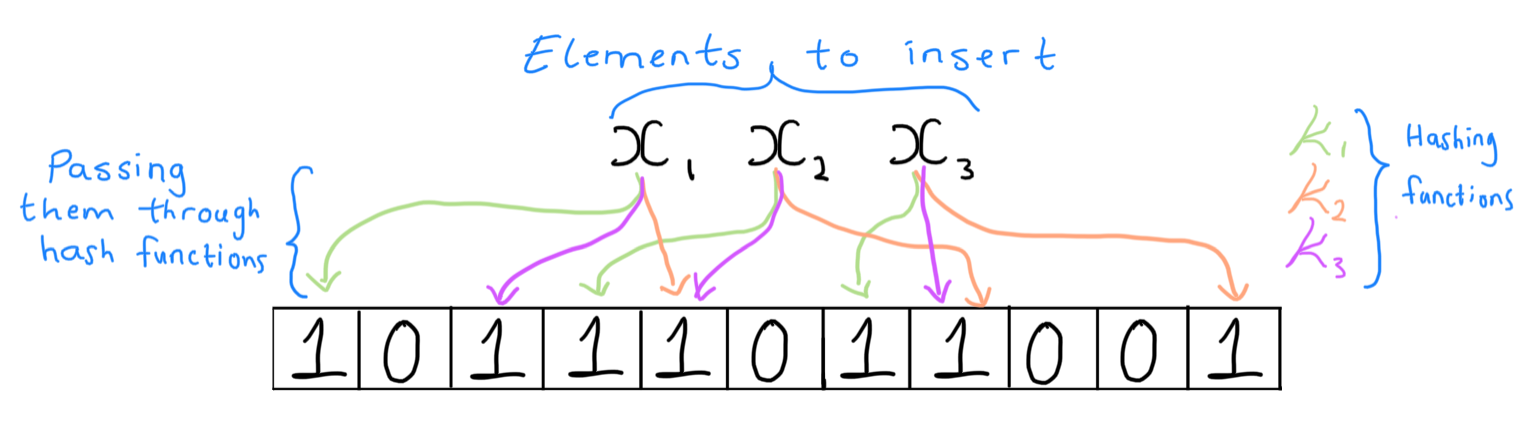 Elements to insert
x₁ x₂ x₃
Passing
them through
hash functions
k₁
k₂
k₃
Hashing
functions
1 0 1 1 1 0 1 1 0 0 1